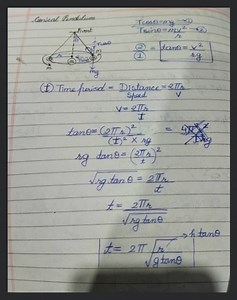 Conical Pendulum
Tcosθ = mg —①
Tsinθ = mv²/r —②
②/① = tanθ = v²/rg
(I) Time period = Distance/Speed = 2πr/v
v = 2πr/t
tanθ = (2πr)²/(t)² × rg
rg tanθ = (2πr/t)²
√rg tanθ = 2πr/t
t = 2πr/√rg tanθ
t = 2π √r/g tanθ → h tanθ